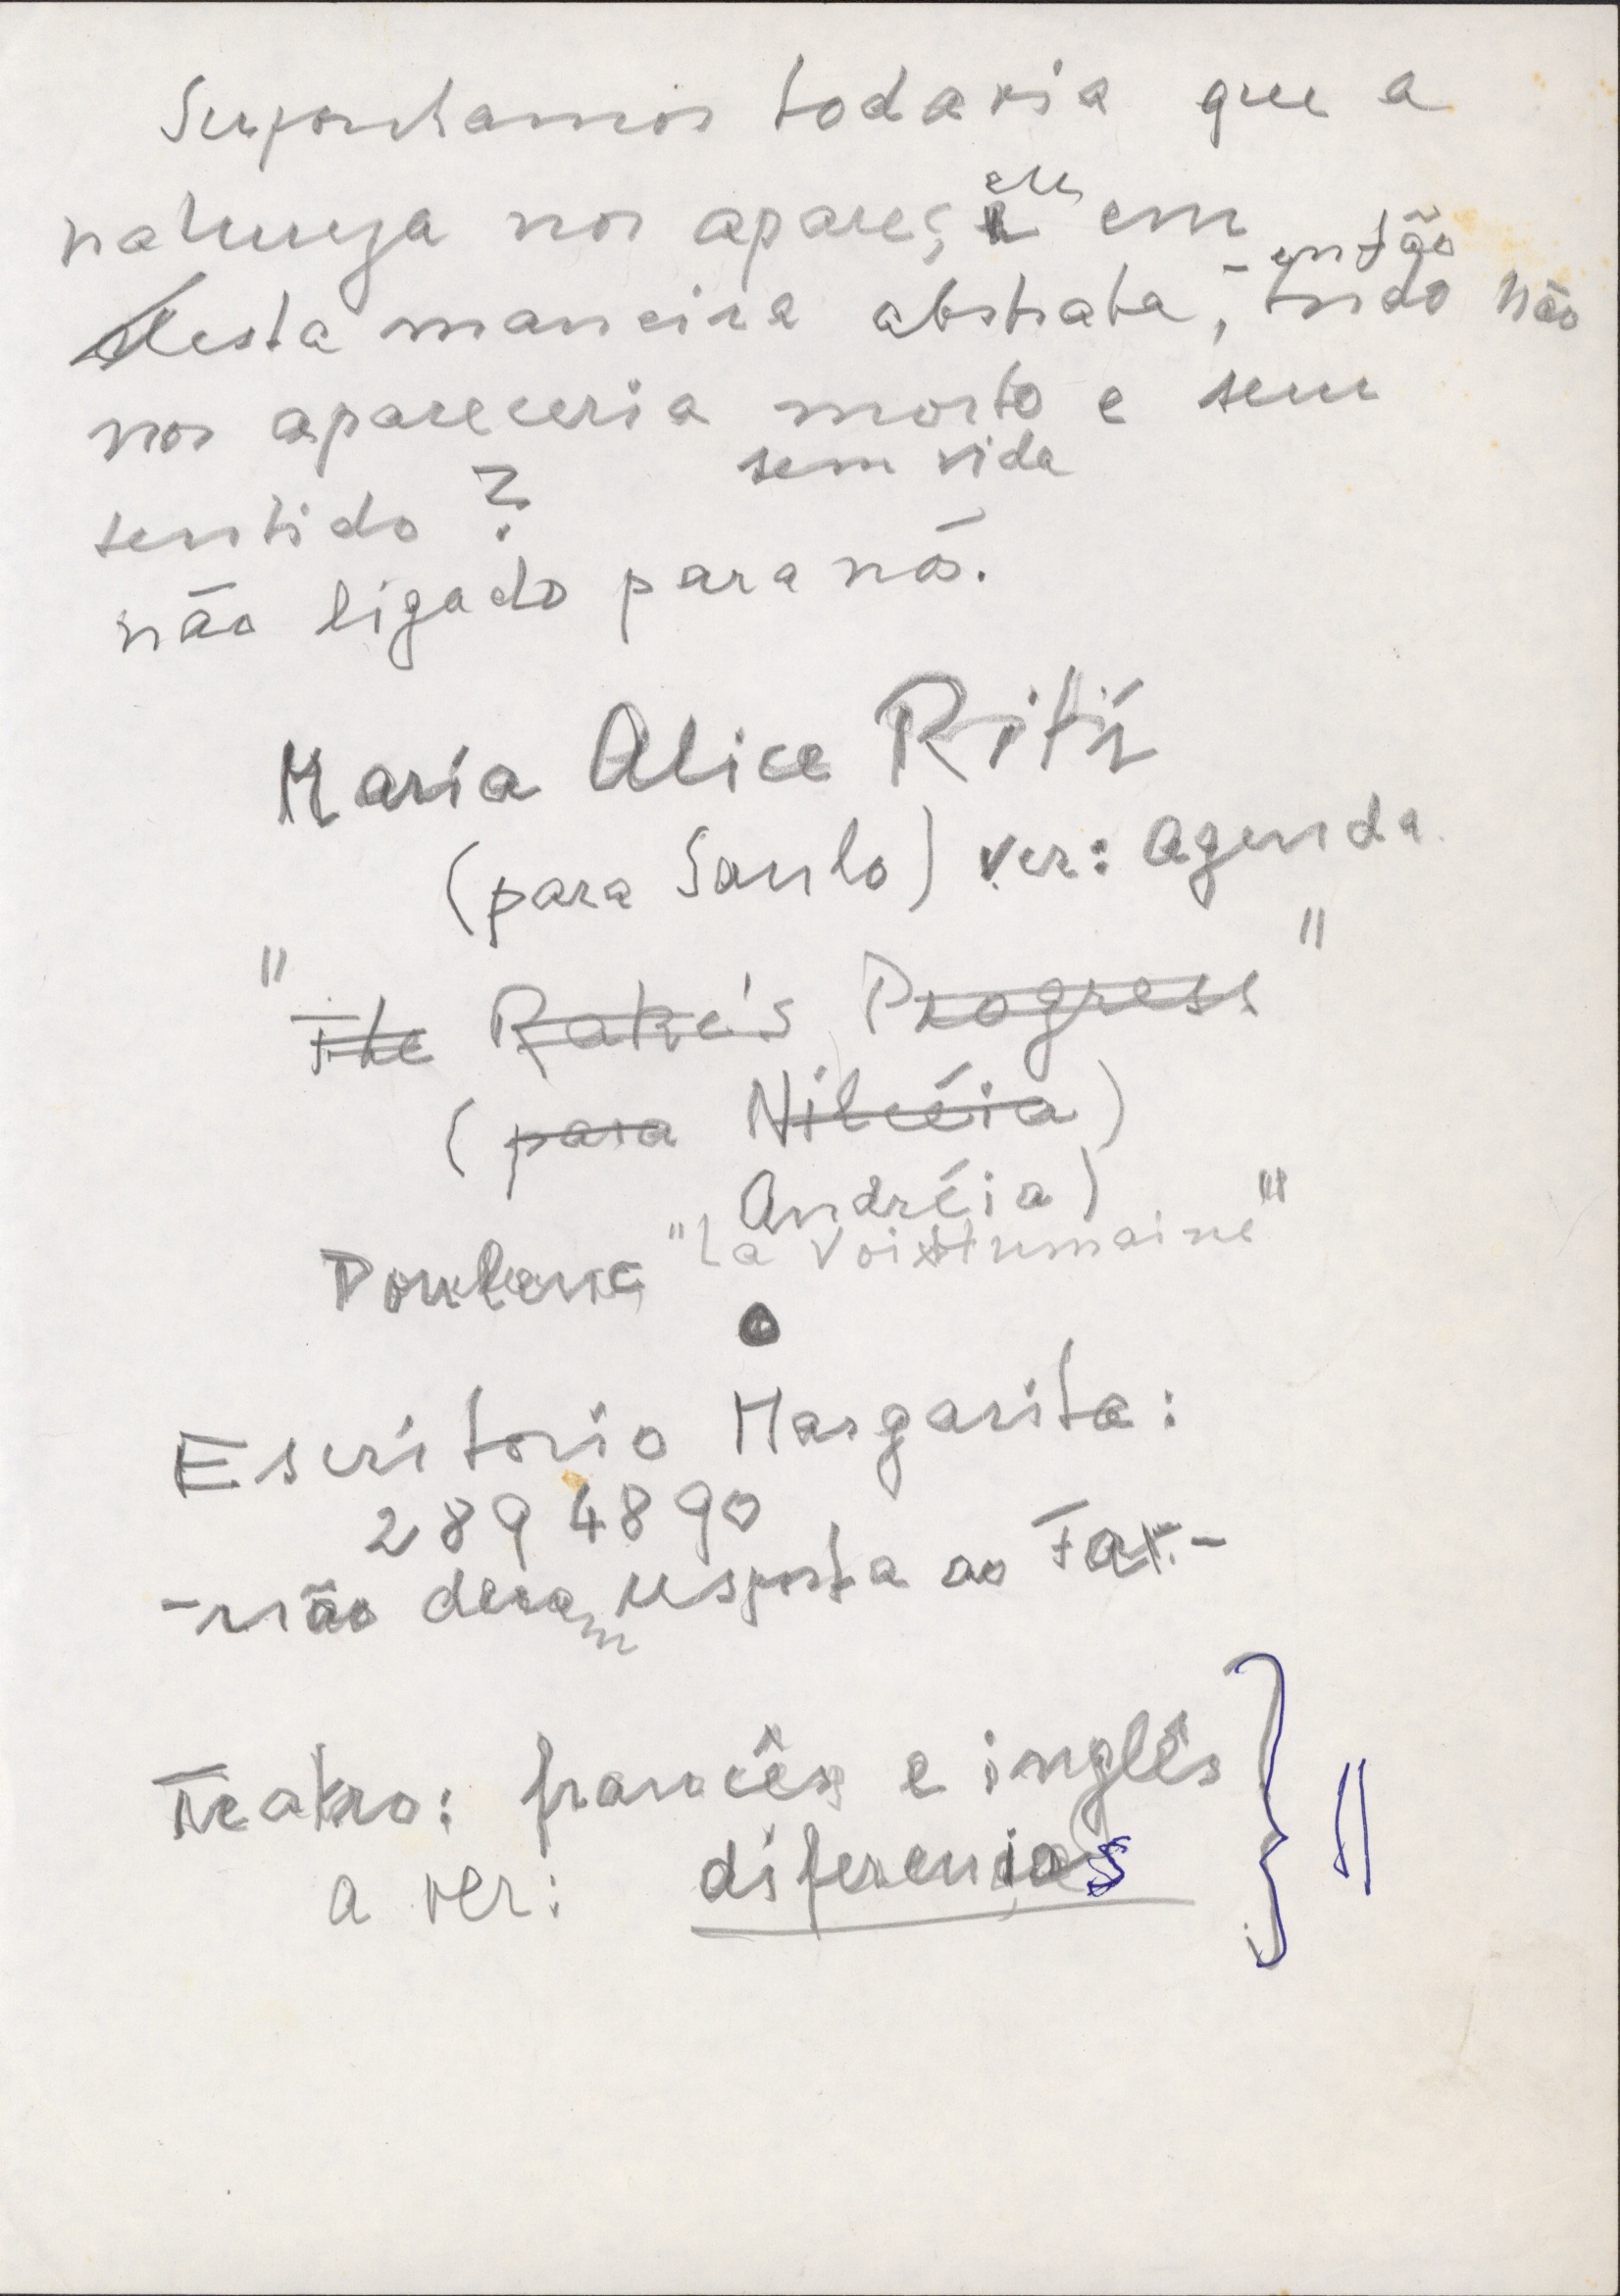 Suponhamos todavia que a
natureza nos apareça em
desta maneira abstrata, - então
tudo não
nos apareceria morto e sem
sem vida
sentido ?
não ligado para nós.
Maria Alice
(para Saulo) ver: Agenda.
"The Rake's Progress"
(para Nilcéia)
Andréia)
Poulenc "La Voix Humaine"
Escritorio Margarita:
289 4890
- não deram resposta ao Fax. -
Teatro: francês e inglês
a ver: diferenças